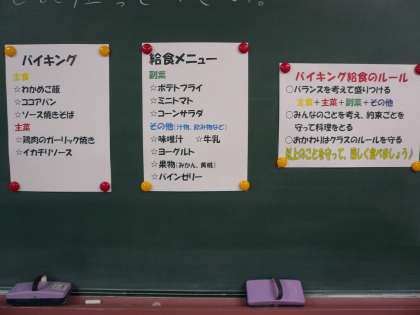 バイキング
主食
☆わかめご飯
☆ココアパン
☆ソース焼きそば
主菜
☆鶏肉のガーリック焼き
☆イカチリソース
給食メニュー
副菜
☆ポテトフライ
☆ミニトマト
☆コーンサラダ
その他(汁物、飲み物など)
☆味噌汁 ☆牛乳
☆ヨーグルト
☆果物(みかん、黄桃)
☆パインゼリー
バイキング給食のルール
○バランスを考えて盛りつける
主食+主菜+副菜+その他
○みんなのことを考え、約束ごとを
守って料理をとる
○おかわりはクラスのルールを守る
以上のことを守って、楽しく食べましょう♪